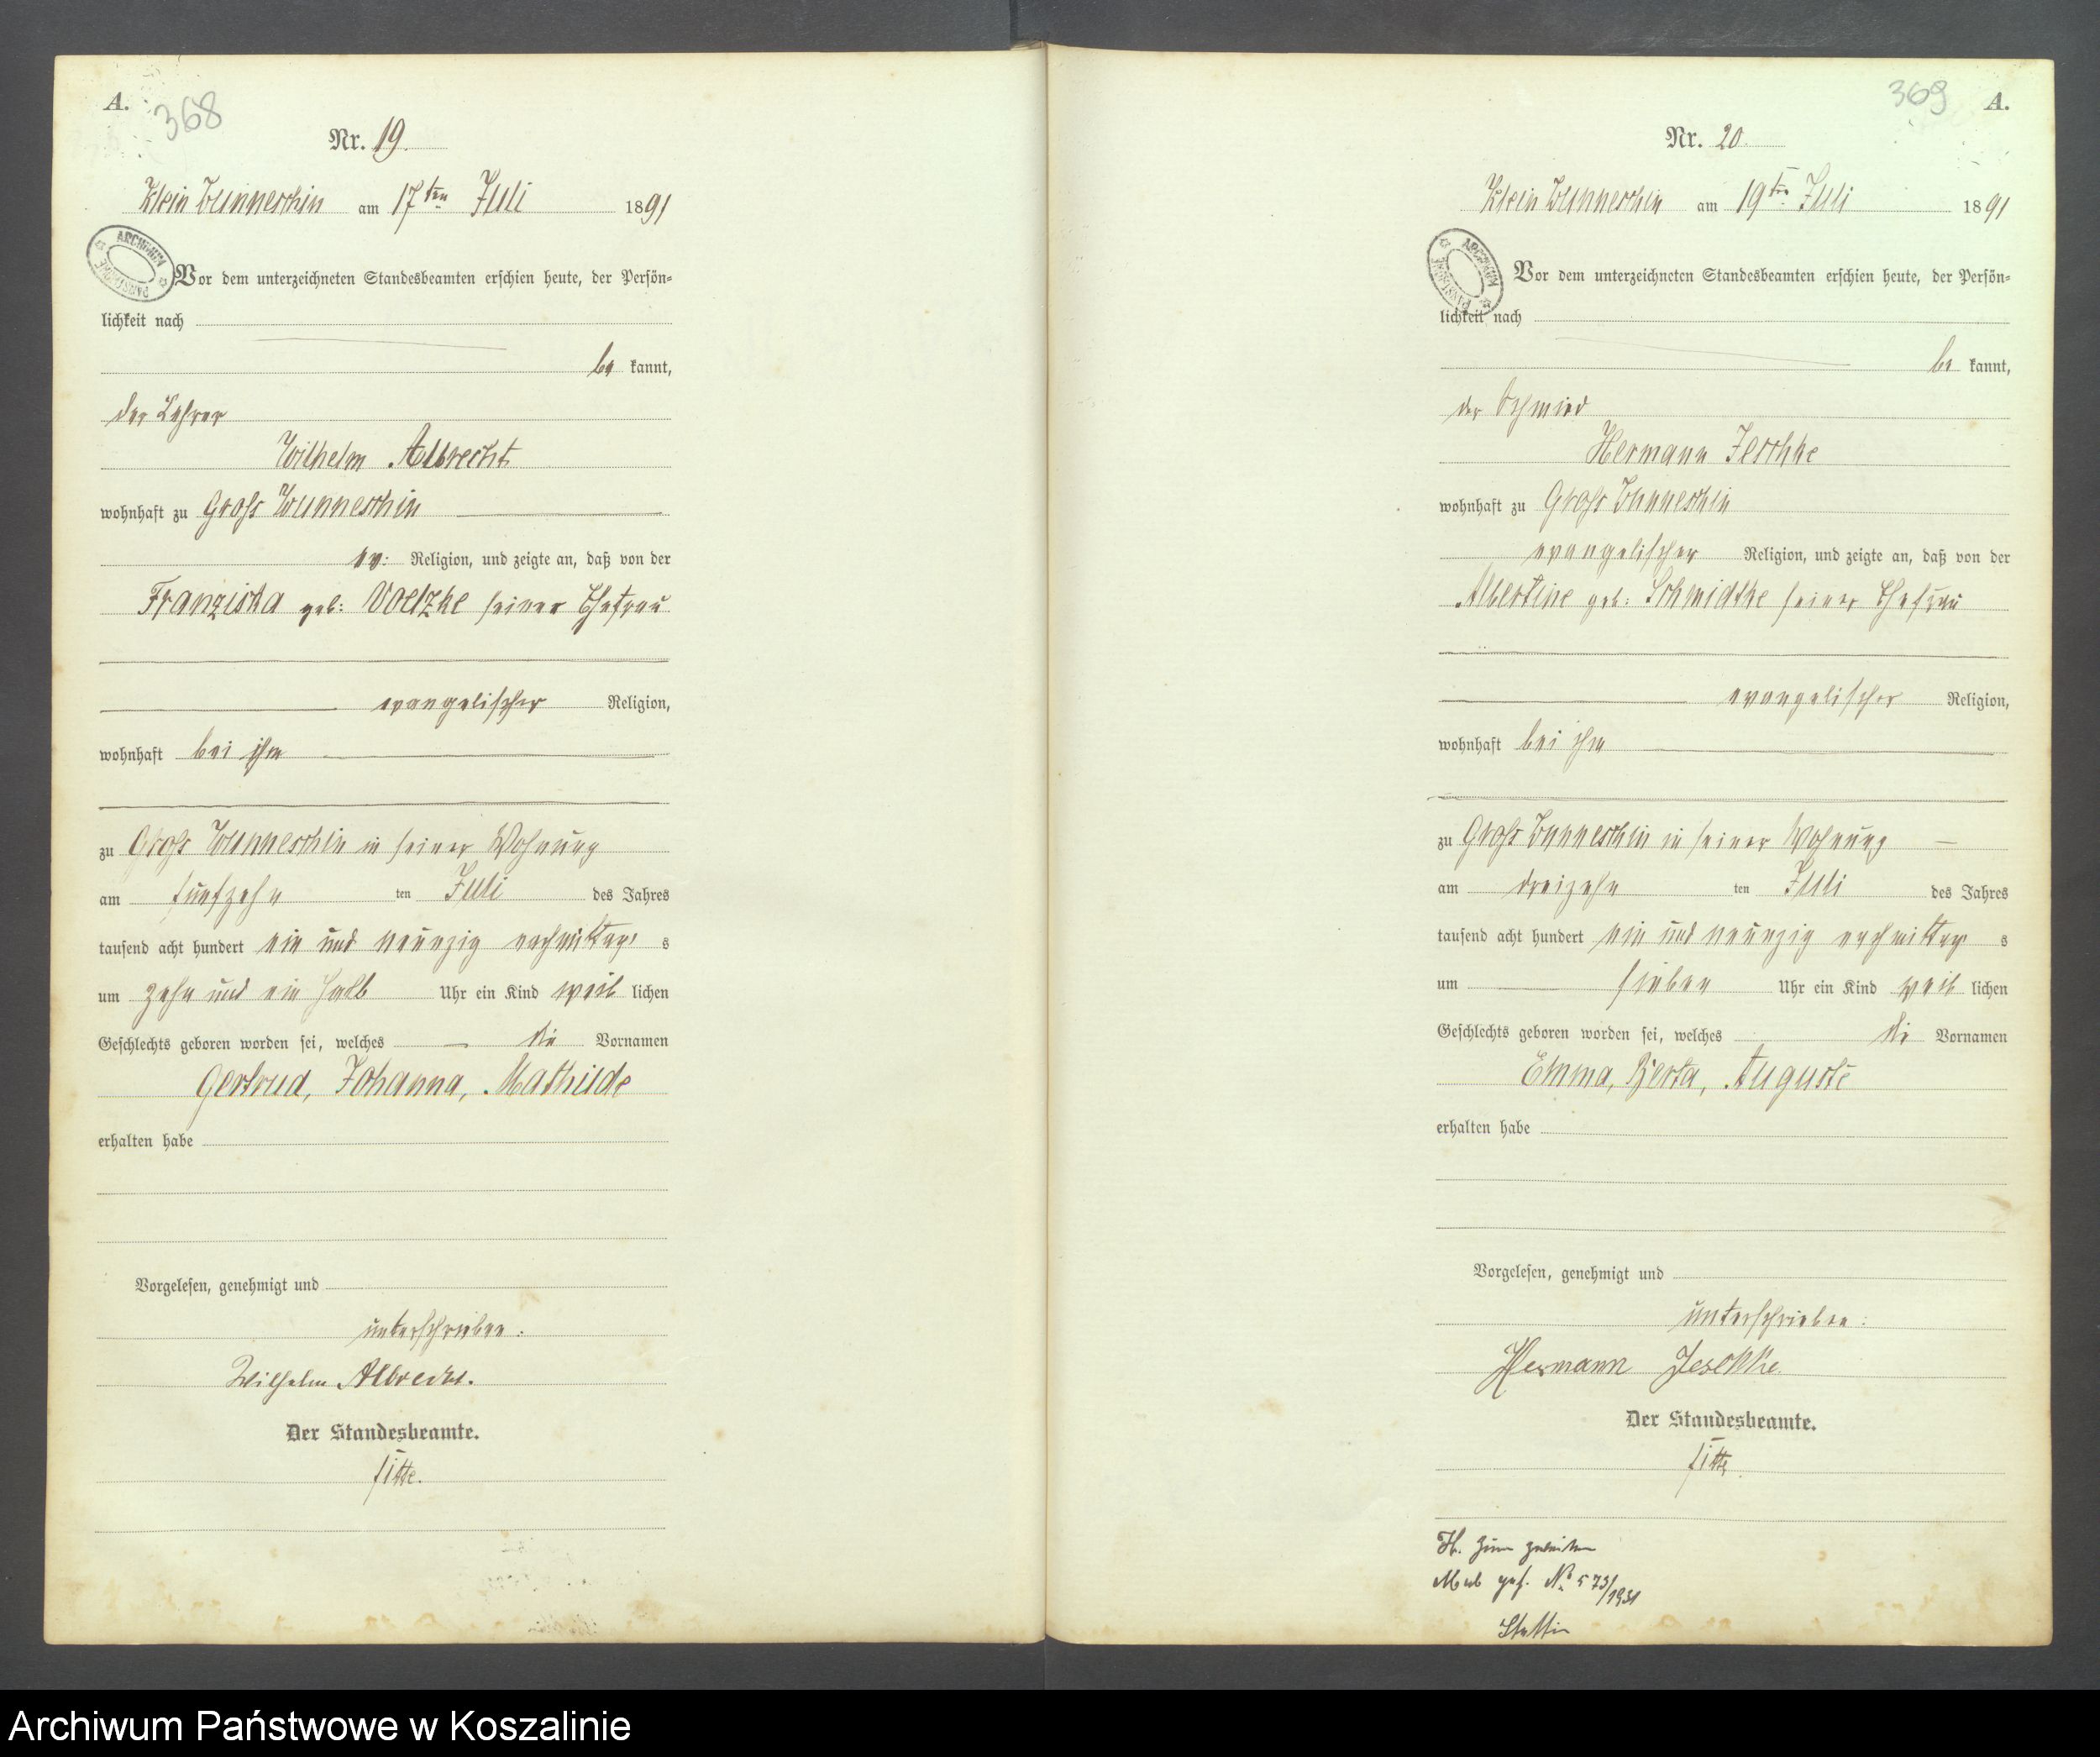 A.
368
Nr. 19.
Klein Wunneschin am 17ten Juli 1891
ARCHIWUM PAŃSTWOWE
Vor dem unterzeichneten Standesbeamten erschien heute, der Persön=
lichkeit nach
be kannt,
der Lehrer
Wilhelm Albrecht
wohnhaft zu Groß Wunneschin
ev: Religion, und zeigte an, daß von der
Franziska geb: Voelzke seiner Ehefrau
evangelischer Religion,
wohnhaft bei ihm
zu Groß Wunneschin in seiner Wohnung
am fünfzehn ten Juli des Jahres
tausend acht hundert ein und neunzig nachmittags
um zehn und ein halb Uhr ein Kind weib lichen
Geschlechts geboren worden sei, welches die Vornamen
Gertrud, Johanna, Mathilde
erhalten habe
Vorgelesen, genehmigt und
unterschrieben:
Wilhelm Albrecht.
Der Standesbeamte.
369
A.
Nr. 20.
Klein Wunneschin am 19ten Juli 1891
ARCHIWUM PAŃSTWOWE
Vor dem unterzeichneten Standesbeamten erschien heute, der Persön=
lichkeit nach
be kannt,
der Schmied
Hermann Jeschke
wohnhaft zu Groß Wunneschin
evangelischer Religion, und zeigte an, daß von der
Albertine geb: Schmidtke seiner Ehefrau
evangelischer Religion,
wohnhaft bei ihm
zu Groß Wunneschin in seiner Wohnung
am dreizehn ten Juli des Jahres
tausend acht hundert ein und neunzig nachmittags
um sieben Uhr ein Kind weib lichen
Geschlechts geboren worden sei, welches die Vornamen
Emma, Berta, Auguste
erhalten habe
Vorgelesen, genehmigt und
unterschrieben:
Hermann Jeschke.
Der Standesbeamte.
zum zweiten
Mal geh. No 573/1931
Stettin
Archiwum Państwowe w Koszalinie